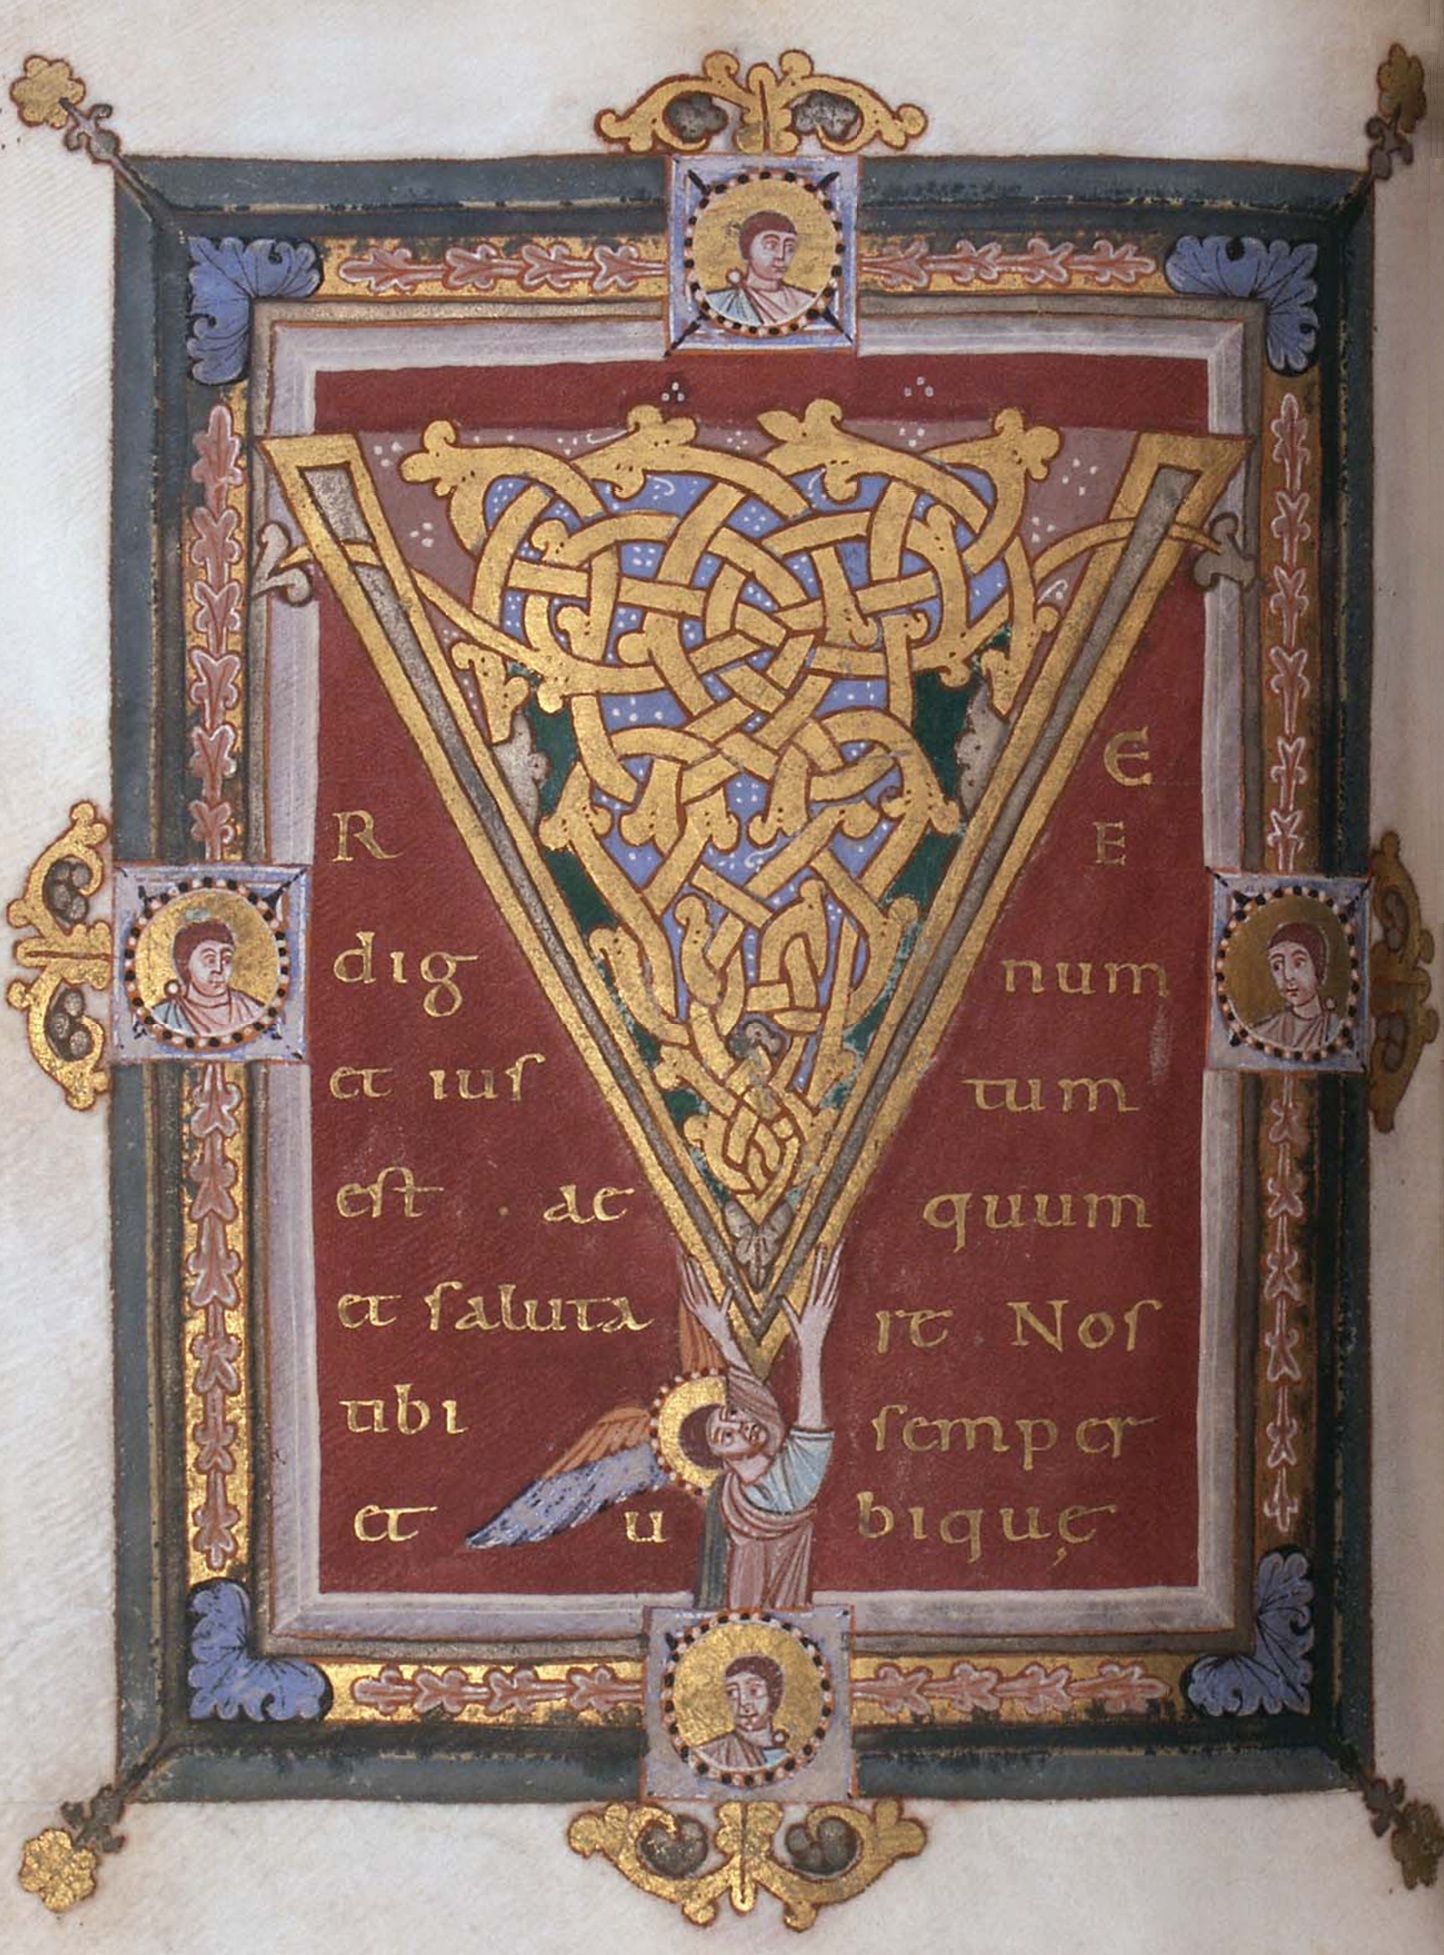 V E
R E
dig num
et ius tum
est · ae quum
et saluta re Nos
tibi semper
et u biquę